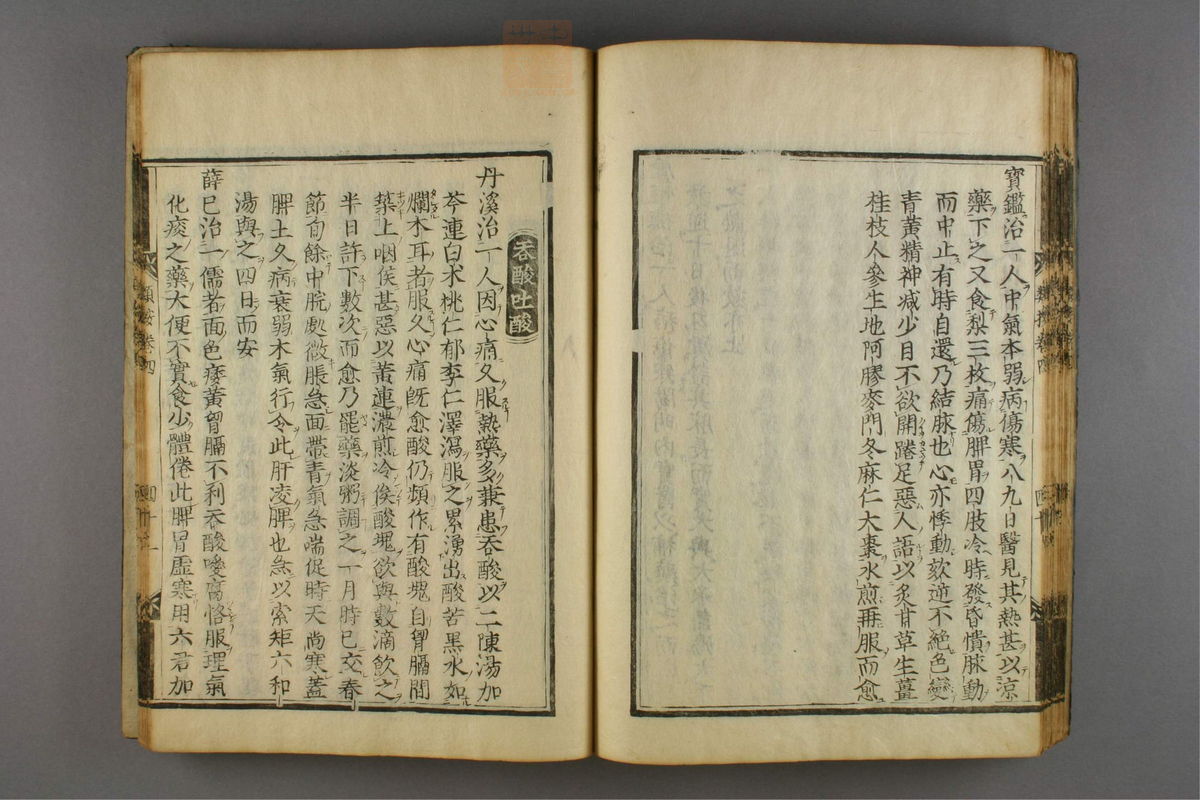 寶鑑治一人中氣本弱病傷寒八九日醫見其熱甚以涼
藥下之又食梨三枚痛傷脾胃四肢冷時發昏憒脉動
而中止有時自還乃結脉也心亦悸動欬逆不絶色變
青黄精神减少目不欲開踡足惡人語以炙甘草生薑
桂枝人參生地阿膠麥門冬麻仁大棗水煎再服而愈
吞酸吐酸
丹溪治一人因心痛久服熱藥多兼患吞酸以二陳湯加
芩連白术桃仁郁李仁澤瀉服之累湧出酸苦黒水如
爛木耳者服久心痛旣愈酸仍頻作有酸塊自胷膈間
築上咽喉甚惡以黄連濃煎冷俟酸塊欲與數滴飲之
半日許下數次而愈乃罷藥淡粥調之一月時已交春
節旬餘中脘處微脹急面帶青氣急喘促時天尚寒蓋
脾土久病衰弱木氣行令此肝凌脾也急以索矩六和
湯與之四日而安
薛已治一儒者面色痿黄胷膈不利吞酸噯腐恪服理氣
化痰之藥大便不實食少體倦此脾胃虚寒用六君加